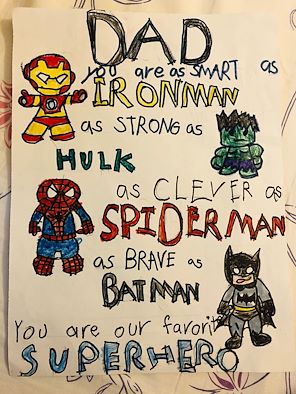 DAD
you are as SMART as
IRONMAN
as STRONG as
HULK
as CLEVER as
SPIDERMAN
as BRAVE as
BATMAN
You are our favorite
SUPERHERO